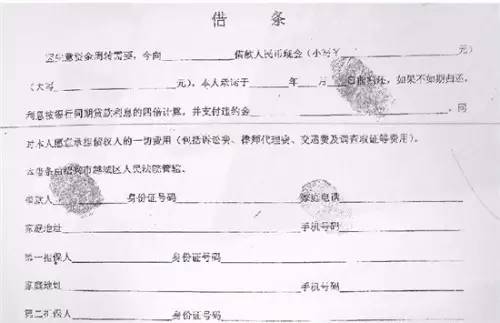 借 条
因生意资金周转需要，今向____________借款人民币现金（小写￥____________元）
（大写____________元），本人承诺于______年___月___日前归还，如果不如期归还，
利息按银行同期贷款利息的四倍计算，并支付违约金____________，同
时本人愿意承担债权人的一切费用（包括诉讼费、律师代理费、交通费及调查取证等费用）。
本借条由绍兴市越城区人民法院管辖。
借款人____________身份证号码____________家庭电话____________
家庭地址____________手机号码____________
第一担保人____________身份证号码____________
家庭地址____________手机号码____________
第二担保人____________身份证号码____________